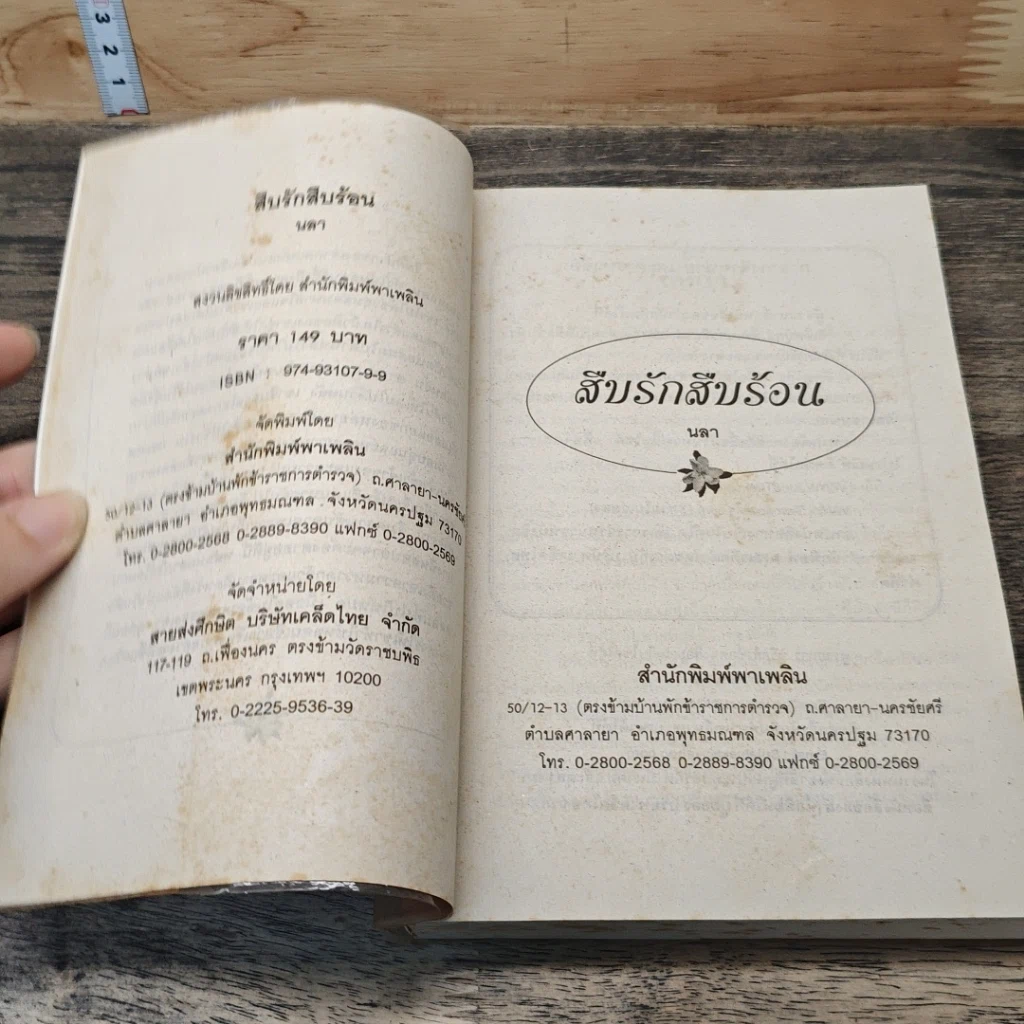 3
2
1
สืบรักสืบร้อน
นลา
สงวนลิขสิทธิ์โดย สำนักพิมพ์พาเพลิน
ราคา 149 บาท
ISBN : 974-93107-9-9
จัดพิมพ์โดย
สำนักพิมพ์พาเพลิน
50/12-13 (ตรงข้ามบ้านพักข้าราชการตำรวจ) ถ.ศาลายา-นครชัย
ตำบลศาลายา อำเภอพุทธมณฑล จังหวัดนครปฐม 73170
โทร. 0-2800-2568 0-2889-8390 แฟกซ์ 0-2800-2569
จัดจำหน่ายโดย
สายส่งศึกษิต บริษัทเคล็ดไทย จำกัด
117-119 ถ.เฟื่องนคร ตรงข้ามวัดราชบพิธ
เขตพระนคร กรุงเทพฯ 10200
โทร. 0-2225-9536-39
สืบรักสืบร้อน
นลา
สำนักพิมพ์พาเพลิน
50/12-13 (ตรงข้ามบ้านพักข้าราชการตำรวจ) ถ.ศาลายา-นครชัยศรี
ตำบลศาลายา อำเภอพุทธมณฑล จังหวัดนครปฐม 73170
โทร. 0-2800-2568 0-2889-8390 แฟกซ์ 0-2800-2569